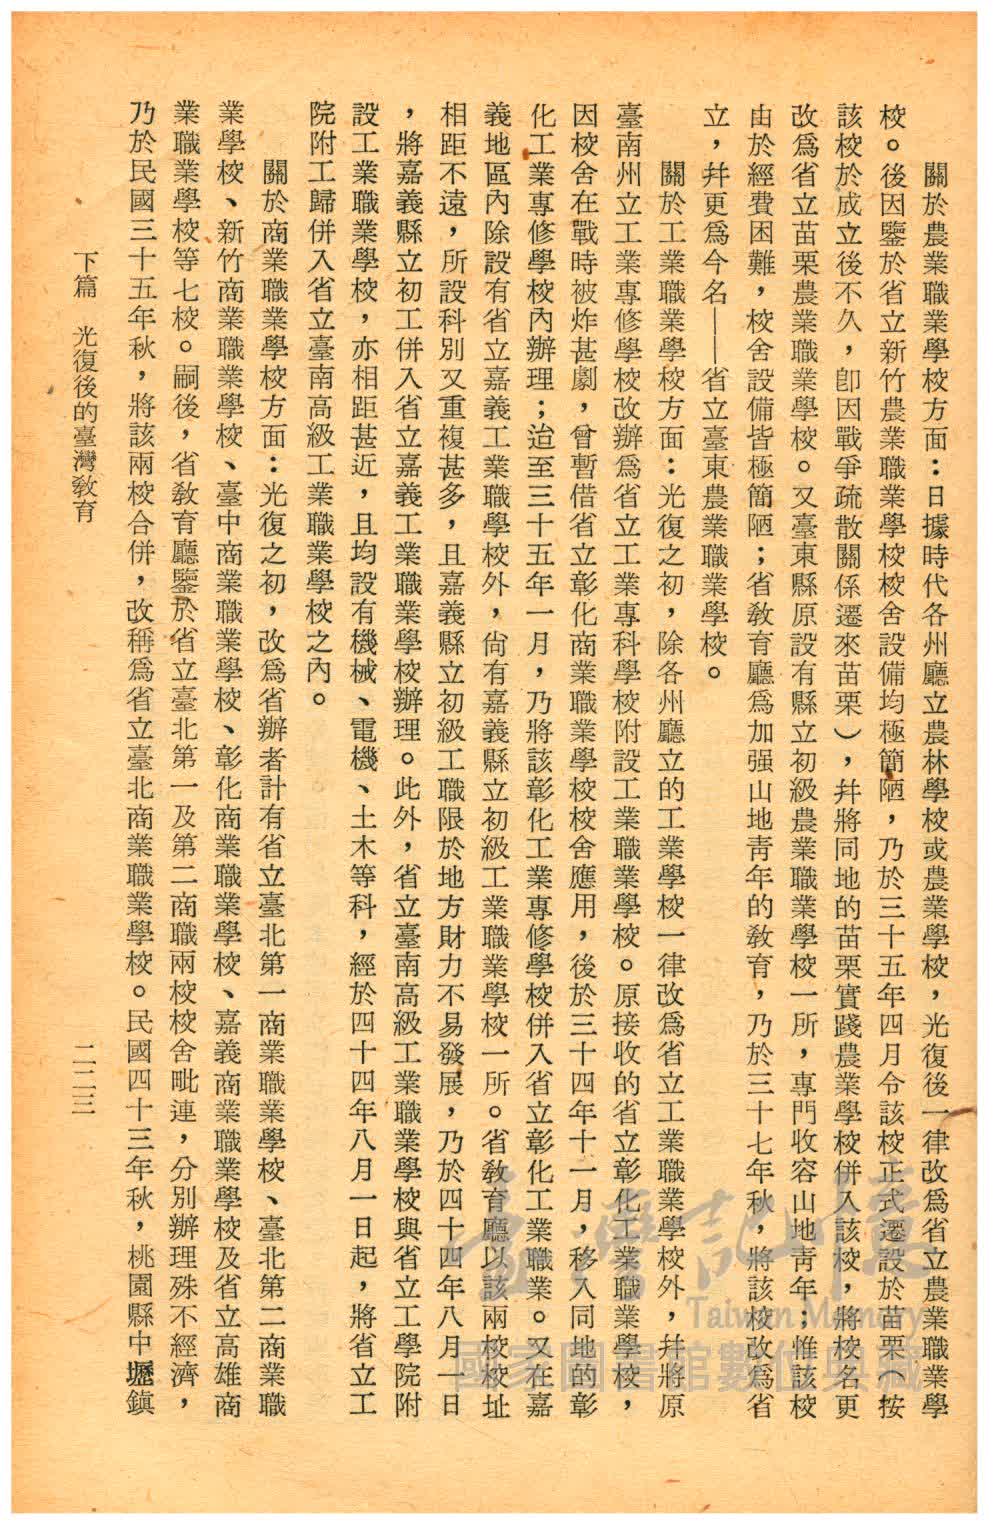 關於農業職業學校方面：日據時代各州廳立農林學校或農業學校，光復後一律改爲省立農業職業學
校。後因鑒於省立新竹農業職業學校校舍設備均極簡陋，乃於三十五年四月令該校正式遷設於苗栗（按
該校於成立後不久，卽因戰爭疏散關係遷來苗栗），幷將同地的苗栗實踐農業學校併入該校，將校名更
改爲省立苗栗農業職業學校。又臺東縣原設有縣立初級農業職業學校一所，專門收容山地靑年；惟該校
由於經費困難，校舍設備皆極簡陋；省敎育廳爲加强山地靑年的敎育，乃於三十七年秋，將該校改爲省
立，幷更爲今名——省立臺東農業職業學校。
關於工業職業學校方面：光復之初，除各州廳立的工業學校一律改爲省立工業職業學校外，幷將原
臺南州立工業專修學校改辦爲省立工業專科學校附設工業職業學校。原接收的省立彰化工業職業學校，
因校舍在戰時被炸甚劇，曾暫借省立彰化商業職業學校校舍應用，後於三十四年十一月，移入同地的彰
化工業專修學校內辦理；迨至三十五年一月，乃將該彰化工業專修學校併入省立彰化工業職業。又在嘉
義地區內除設有省立嘉義工業職學校外，尙有嘉義縣立初級工業職業學校一所。省敎育廳以該兩校校址
相距不遠，所設科別又重複甚多，且嘉義縣立初級工職限於地方財力不易發展，乃於四十四年八月一日
，將嘉義縣立初工併入省立嘉義工業職業學校辦理。此外，省立臺南高級工業職業學校與省立工學院附
設工業職業學校，亦相距甚近，且均設有機械、電機、土木等科，經於四十四年八月一日起，將省立工
院附工歸併入省立臺南高級工業職業學校之內。
關於商業職業學校方面：光復之初，改爲省辦者計有省立臺北第一商業職業學校、臺北第二商業職
業學校、新竹商業職業學校、臺中商業職業學校、彰化商業職業學校、嘉義商業職業學校及省立高雄商
業職業學校等七校。嗣後，省敎育廳鑒於省立臺北第一及第二商職兩校校舍毗連，分別辦理殊不經濟，
乃於民國三十五年秋，將該兩校合併，改稱爲省立臺北商業職業學校。民國四十三年秋，桃園縣中壢鎮
下篇　光復後的臺灣敎育
二二三
臺灣記憶
Taiwan Memory
國家圖書館數位典藏